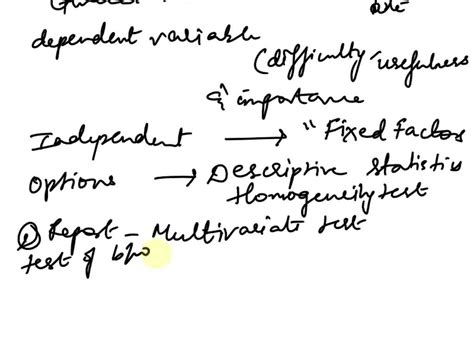 dependent variable
(difficulty usefulness
& importance
Independent → "Fixed Factors
Options → Descriptive statistics
Homogeneity test
① Report - Multivariate test
test of